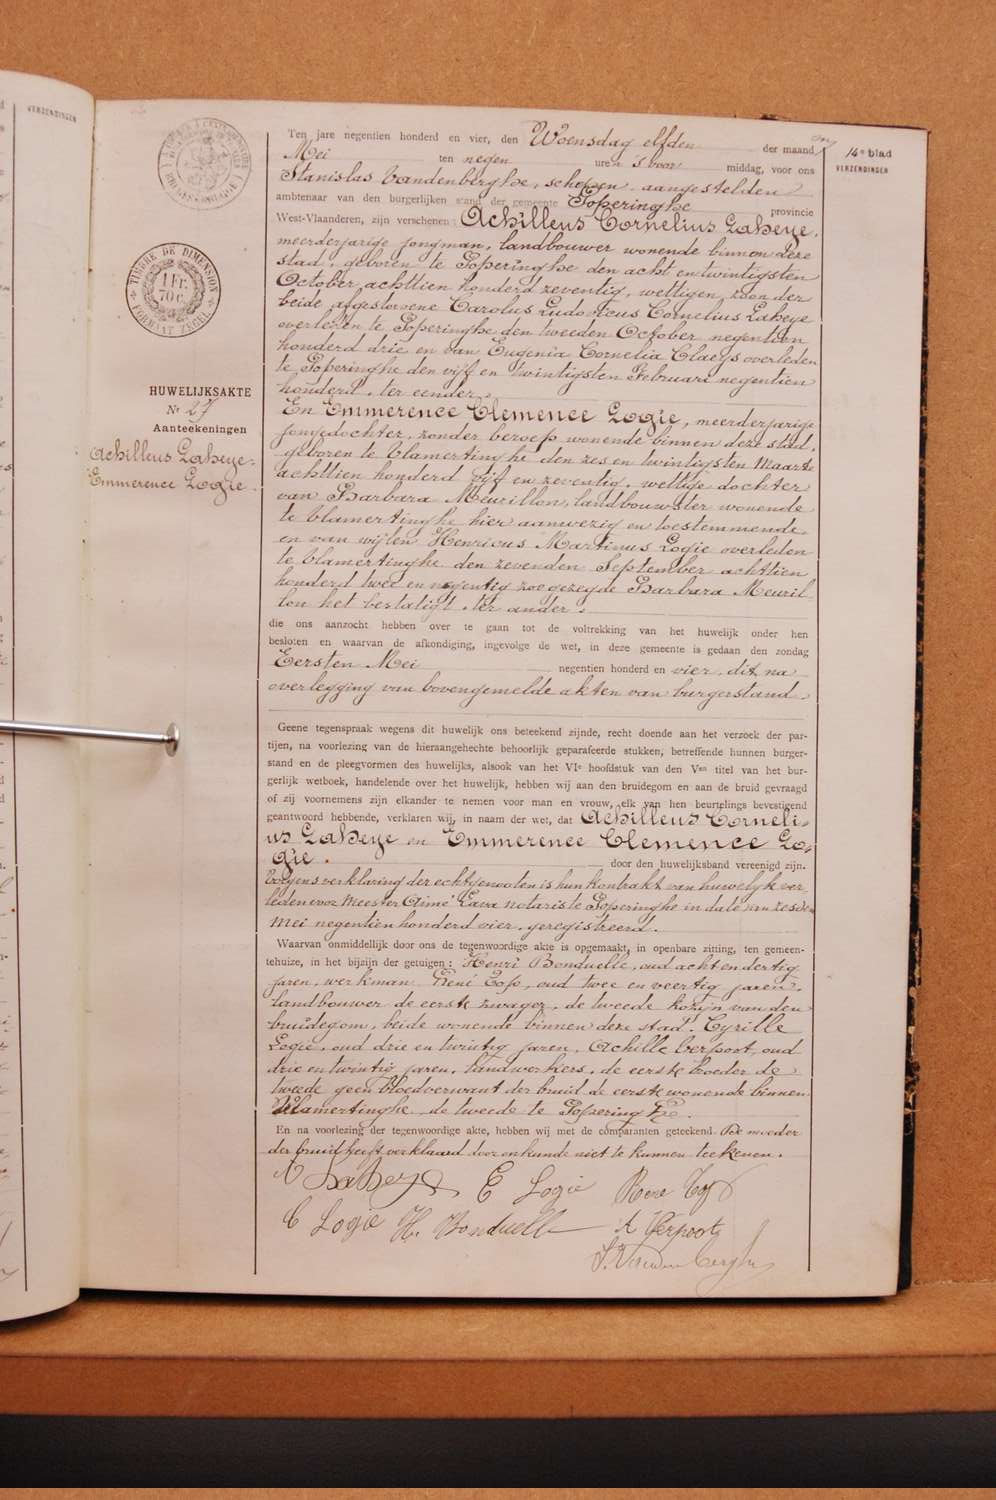 VERZENDINGEN
14e blad
VERZENDINGEN
TIMBRE DE DIMENSION
1 Fr.
70 c.
FORMAAT ZEGEL
HUWELIJKSAKTE
No 27
Aanteekeningen
Achilleus Laheye.
Emmerence Logie
Ten jare negentien honderd en vier, den Woensdag elfden der maand
Mei ten negen uren 's voor middag, voor ons
Stanislas Vandenberghe, schepen aangestelden
ambtenaar van den burgerlijken stand der gemeente Poperinghe provincie
West-Vlaanderen, zijn verschenen : Achilleus Cornelius Laheye,
meerderjarige jongman, landbouwer wonende binnen deze
stad, geboren te Poperinghe den acht en twintigsten
October achttien honderd zeventig, wettigen zoon der
beide afgestorvene Carolus Ludovicus Cornelius Laheye
overleden te Poperinghe den tweeden October negentien
honderd drie en van Eugenia Cornelia Claeys overleden
te Poperinghe den vijf en twintigsten Februari negentien
honderd, ter eender.
En Emmerence Clemence Logie, meerderjarige
jongedochter, zonder beroep wonende binnen deze stad,
geboren te Vlamertinghe den zes en twintigsten Maarte
achttien honderd vijf en zeventig, wettige dochter
van Barbara Meurillon, landbouwster wonende
te Vlamertinghe hier aanwezig en toestemmende
en van wijlen Henricus Martinus Logie overleden
te Vlamertinghe den zevenden September achttien
honderd twee en negentig zoo gezegde Barbara Meuril
lon het bestatigt, ter ander.
die ons aanzocht hebben over te gaan tot de voltrekking van het huwelijk onder hen
besloten en waarvan de afkondiging, ingevolge de wet, in deze gemeente is gedaan den zondag
Eersten Mei negentien honderd en vier, dit na
overlegging van bovengemelde akten van burgerstand.
Geene tegenspraak wegens dit huwelijk ons beteekend zijnde, recht doende aan het verzoek der par-
tijen, na voorlezing van de hieraangehechte behoorlijk geparafeerde stukken, betreffende hunnen burger-
stand en de pleegvormen des huwelijks, alsook van het VIe hoofdstuk van den Ven titel van het bur-
gerlijk wetboek, handelende over het huwelijk, hebben wij aan den bruidegom en aan de bruid gevraagd
of zij voornemens zijn elkander te nemen voor man en vrouw, elk van hen beurtelings bevestigend
geantwoord hebbende, verklaren wij, in naam der wet, dat Achilleus Corneli-
us Laheye en Emmerence Clemence Lo-
gie. door den huwelijksband vereenigd zijn.
Volgens verklaring der echtgenooten is hun kontrakt van huwelyk ver
leden voor Meester Aimé Lava notaris te Poperinghe in date van zesden
Mei negentien honderd vier, geregistreerd.
Waarvan onmiddellijk door ons de tegenwoordige akte is opgemaakt, in openbare zitting, ten gemeen-
tehuize, in het bijzijn der getuigen : Henri Bonduelle, oud acht en dertig
jaren, werkman, René Top, oud twee en veertig jaren,
landbouwer de eerste zwager, de tweede kozijn van den
bruidegom, beide wonende binnen deze stad. Cyrille
Logie, oud drie en twintig jaren, Achille Verpoort, oud
drie en twintig jaren, landwerkers, de eerste broeder de
tweede geen bloedverwant der bruid de eerste wonende binnen
Vlamertinghe de tweede te Poperinghe.
En na voorlezing der tegenwoordige akte, hebben wij met de comparanten geteekend. De moeder
der bruid heeft verklaard door onkunde niet te kunnen teekenen.
A Laheye E Logie Rene Top
C Logie H. Bonduelle A Verpoort
S. Vandenberghe